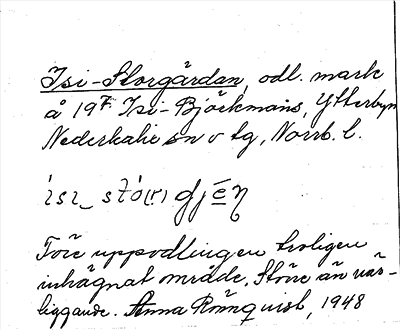 Isi-Storgårdan, odl. mark
å 19⁷ Isi-Björkmans, Ytterbyn
Nederkalix sn o tg, Norrb. l.
ísı_ stó(r) gję́n
Före uppodlingen troligen
inhägnat område. Större än när-
liggande. Anna Rönnquist, 1948